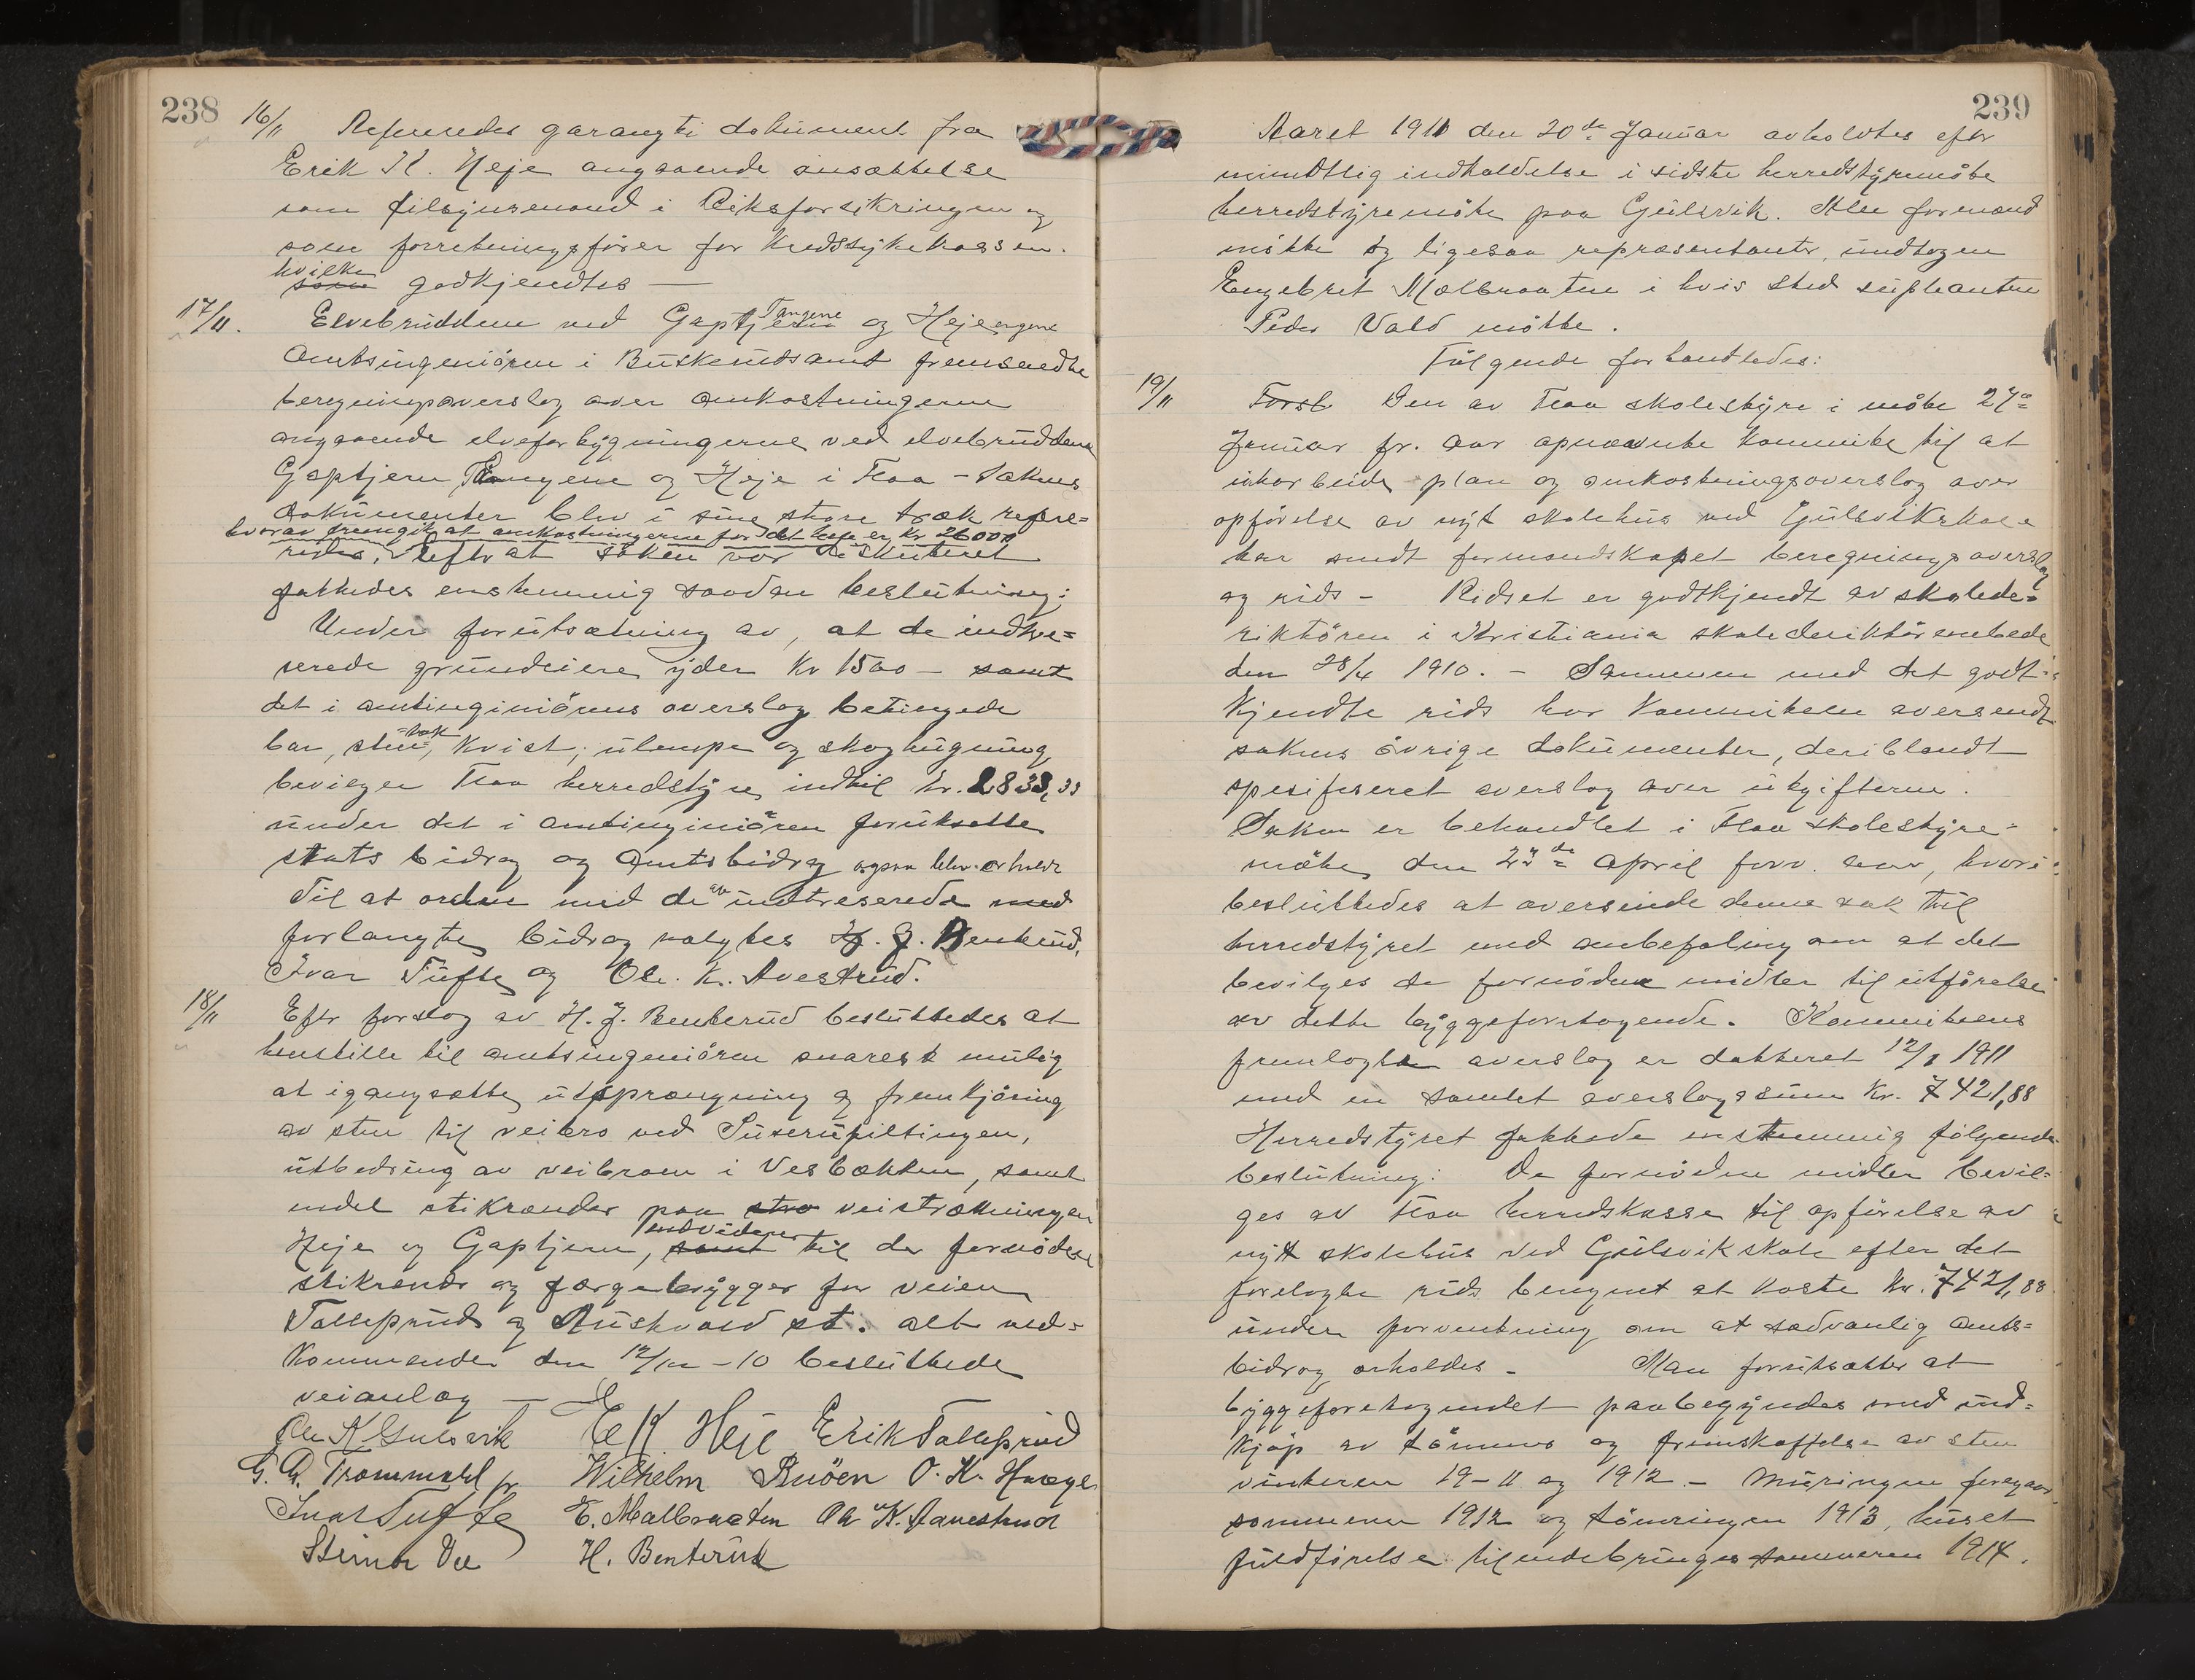 238
16/11 Refereredes garangti dokument fra
Erik K. Heje angaaende ansættelse
som tilsynsmand i Riksforsikringen og
som forretningsfører for Kredssykekassen.
hvilke
som godkjendtes —
17/11. Elvebruddene ved Gaptjern Tangene og Hejeengene
Amtsingeniøren i Buskeruds amt fremsendte
beregningsoverslag over omkostningerne
angaaende elveforbygningerne ved elvebruddene
Gaptjern Tangene og Heje i Flaa – Sakens
dokumenter blev i sine store træk refere=
hvorav fremgik at omkostningerne for det hele er Kr 26000
redes, efter at saken var diskuteret
fattedes enstemmig saadan beslutning:
Under forutsætning av, at de indtre=
serede grundeiere yder Kr 1500 – samt
det i amtingeniørens overslag betingede
bar, sten-tak, kvist, ulempe og skoghugning
bevilger Flaa herredstyre indtil kr. 2833,33
under det i amtingeniøren forutsatte
stats bidrag og Amtsbidrag ogsaa blir erhver
Til at ordne med de av indtreserede med
forlangte bidrag valgtes H. J. Benterud,
Ivar Tufte og Ole. K. Avestrud.
18/11 Efter forslag av H. J. Benterud besluttedes at
henstille til amtsingeniøren snarest mulig
at igangsætte utsprængning og fremkjøring
av sten til veibro ved
utbedring av veibroen i Vesbækken, samt
endel stikrender paa stræ veistrækningen
Heje og Gaptjern, samt endvidere til de fornødne
stikrender og færgebrygger for veien
Tollefsrud og Austvold st. alt ved=
kommende den 12/12 – 10 besluttede
veianlæg —
Ole K Gulsvik E K. Heje Erik Tollefsrud
G. A. Trommald jr Wilhelm Bnöen O. K. Hauge
Ivar Tufte E. Malbraaten Ole K. Aavestrud
Steinar Vee H. Benterud
239
Aaret 1911 den 20de Januar avholdtes efter
mundtlig indkaldelse i sidste herredstyremøte
herredstyremøte paa Gulsvik. Alle formænd
møtte og ligesaa repræsentanter, undtagen
Engebret Malbraaten i hvis sted supleanten
Peder Vold møtte.
Følgende forhandledes:
19/11 Først Den av Flaa skolestyre i møte 27de
Januar fr. aar opnævnte Kommite til at
utarbeide plan og omkostningsoverslag over
opførelse av nyt skolehus ved Gulsvikskole
har sendt formandskapet beregningsoverslag
og rids – Ridset er godtkjendt av skolede=
riktøren i Kristiania skolederiktørembede
den 28/4 1910. – Sammen med det godt=
kjendte rids har Kommiteen oversendt
sakens øvrige dokumenter, deriblandt
spesifiseret overslag over utgifterne.
Saken er behandlet i Flaa skolestyre=
møte den 22de April forr. aar, hvori
besluttedes at oversende denne sak til
herredstyret med anbefaling om at det
bevilges de fornødne midler til utførelse
av dette byggeforetagende. Kommiteens
fremlagte overslag er datteret 12/1 1911
med en samlet overslagssum Kr. 7421,88
Herredstyret fattede enstemmig følgende
beslutning: De fornødne midler bevil=
ges av Flaa herredskasse til opførelse av
nytt skolehus ved Gulsvik skole efter det
forelagte rids beregnet at koste Kr. 7421,88
under forventning om at sedvanlig amts=
bidrag erholdes – Man forutsætter at
byggeforetagendet paabegyndes med ind=
kjøp av tømmer og fremskaffelse av sten
vinteren 19–11 og 1912 – Muringen foregaar
sommeren 1912 og tømringen 1913, huset
fuldførelse tilendebringes sommeren 1914.